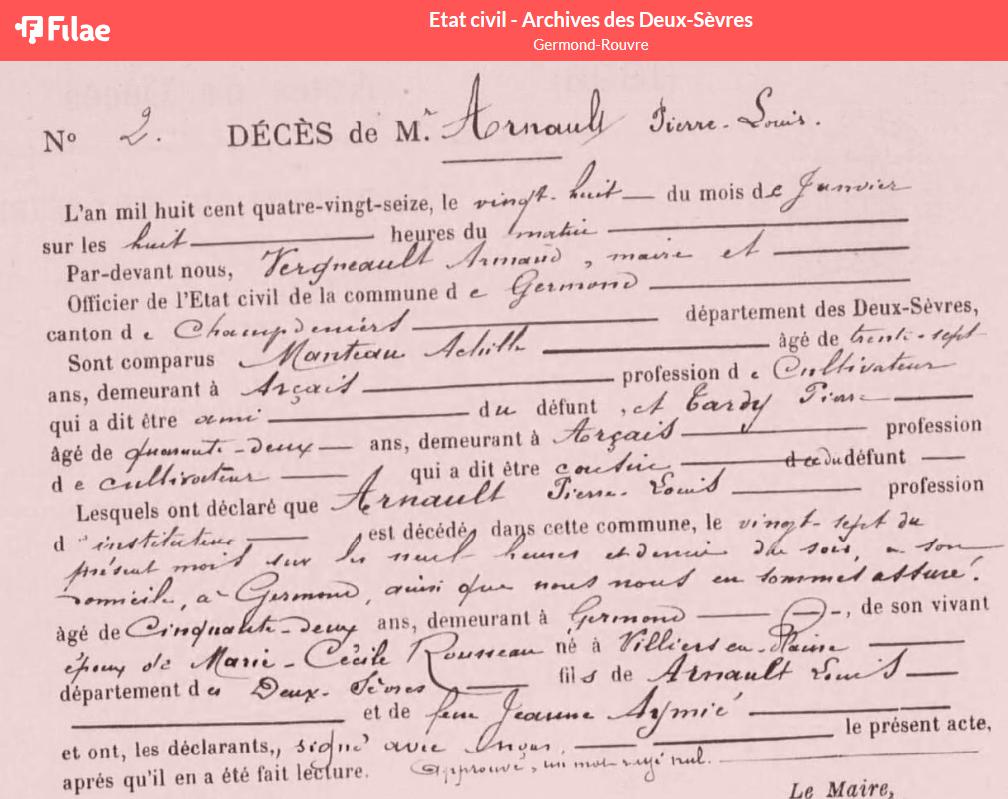 Filae
Etat civil - Archives des Deux-Sèvres
Germond-Rouvre
N° 2. DÉCÈS de M.r Arnault Pierre-Louis.
L'an mil huit cent quatre-vingt-seize, le vingt-huit du mois de Janvier
sur les huit heures du matin
Par-devant nous, Vergneault Armand, maire et
Officier de l'Etat civil de la commune d e Germond
canton d e Champdeniers département des Deux-Sèvres,
Sont comparus Manteau Achille âgé de trente-sept
ans, demeurant à Arçais profession d e Cultivateur
qui a dit être ami du défunt, et Tardy Pierre
âgé de quarante-deux ans, demeurant à Arçais profession
d e cultivateur qui a dit être cousin du défunt
Lesquels ont déclaré que Arnault Pierre-Louis profession
d'instituteur est décédé, dans cette commune, le vingt-sept du
présent mois sur les neuf heures et demie du soir, à son
domicile, à Germond, ainsi que nous nous en sommes assuré.
âgé de Cinquante-deux ans, demeurant à Germond, de son vivant
époux de Marie-Cécile Rousseau né à Villiers en-Plaine
département d es Deux-Sèvres fils de Arnault Louis
et de feue Jeanne Aymié
et ont, les déclarants, signé avec nous. le présent acte,
aprés qu'il en a été fait lecture. Approuvé, un mot rayé nul.
Le Maire,